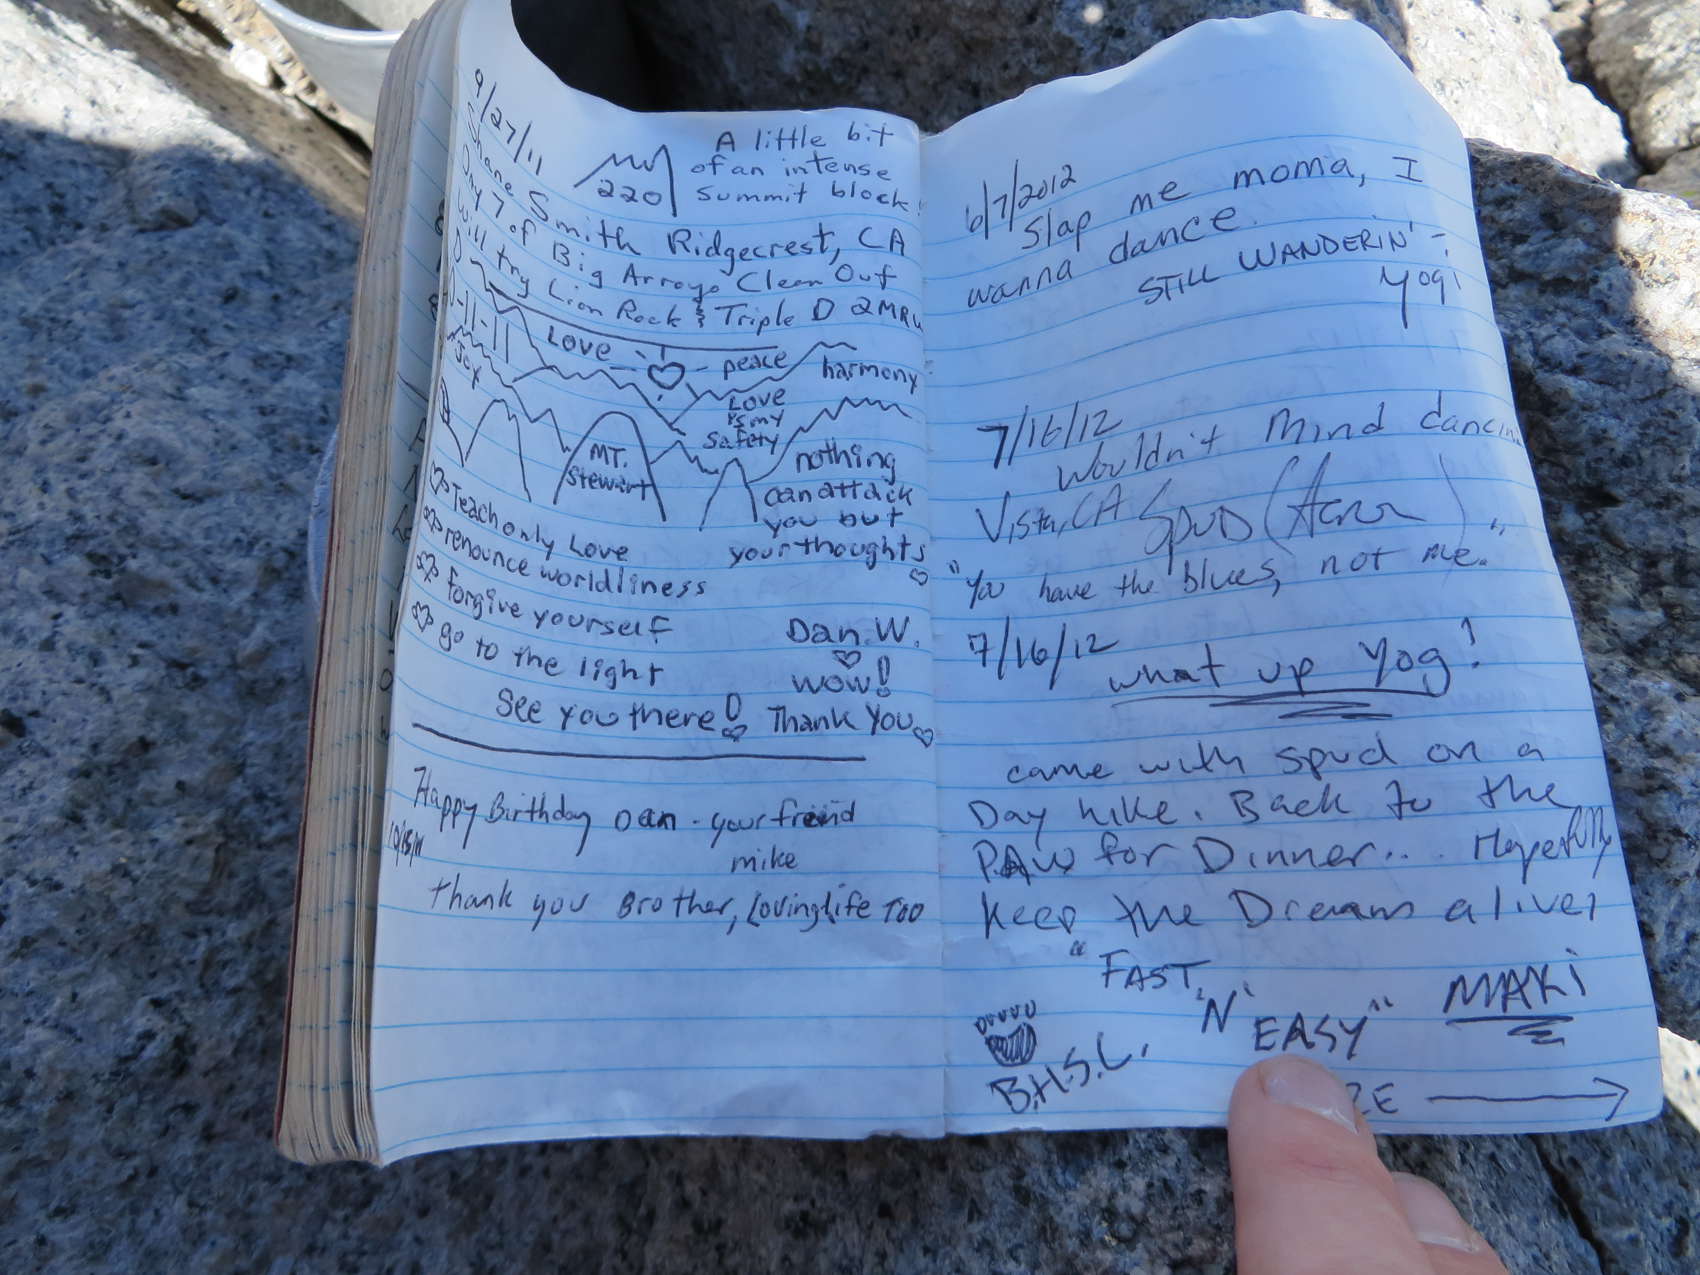 9/27/11
220
A little bit
of an intense
summit block!
Shane Smith Ridgecrest, CA
Day 7 of Big Arroyo Clean Out
Will try Lion Rock & Triple D 2MRW
-11-11
Joy
Love
peace
harmony
Love
is my
Safety
MT.
Stewart
nothing
can attack
you but
your thoughts
Teach only Love
renounce worldliness
forgive yourself
go to the light
See you there!
Dan W.
WOW!
Thank You
Happy Birthday Dan - your freind
mike
10/15/11
Thank you Brother, Loving Life Too
6/7/2012
Slap me moma, I
wanna dance.
STILL WANDERIN' -
Yogi
7/16/12
Wouldn't Mind dancin
Vista, CA Spud
"You have the blues, not me."
7/16/12
what up Yog!
came with spud on a
Day hike. Back to the
P.A.W for Dinner... Hopefully
Keep the Dream alive,
"FAST
'N'
EASY"
MAKi
B.H.S.L.
RE